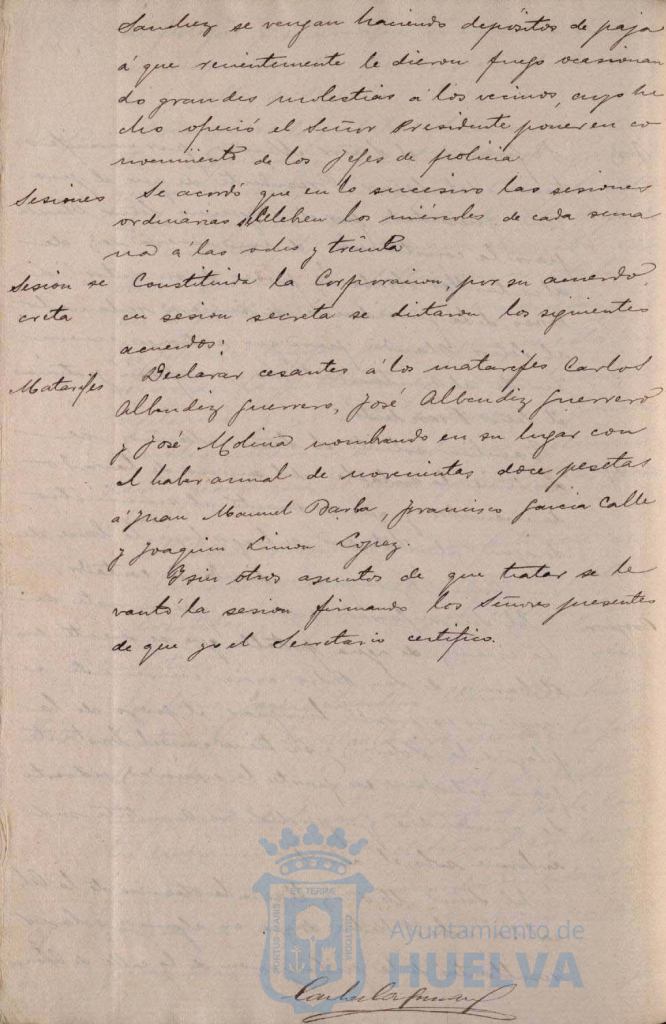 Sanchez se vengan haciendo depósitos de paja
á que recientemente le dieron fuego ocasionan
do grandes molestias á los vecinos, cuyo he
cho ofreció el Señor Presidente poner en co
nocimiento de los Jefes de policia
Sesiones Se acordó que en lo sucesivo las sesiones
ordinarias se celeben los miércoles de cada sema
na á las ocho y treinta
Sesión se Constituida la Corporacion, por su acuerdo,
creta en sesion secreta se dictaron los siguientes
acuerdos:
Matarifes Declarar cesantes á los matarifes Carlos
Albendiz Guerrero, José Albendiz Guerrero
y José Molina nombrando en su lugar con
el haber anual de novecientas doce pesetas
á Juan Manuel Barba, Francisco Garcia Calle
y Joaquin Limon Lopez.
Y sin otros asuntos de que tratar se le
vantó la sesion firmando los Señores presentes
de que yo el Secretario certifico.
ET TERRA
PORTUS MARIS
CUSTODIA
Ayuntamiento de
HUELVA